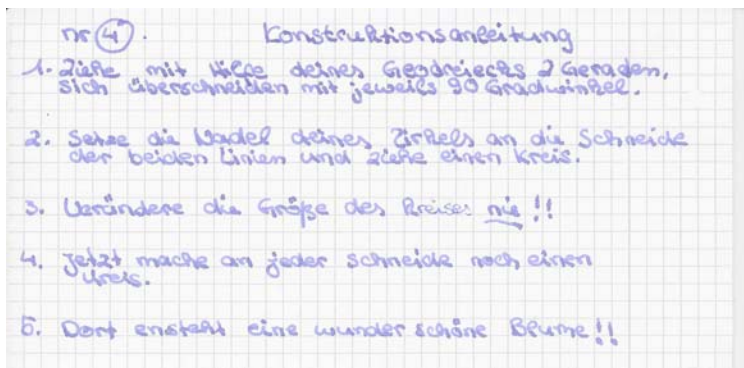 nr 4. Konstruktionsanleitung
1. Ziehe mit Hilfe deines Geodreiecks 2 Geraden,
sich überschneiden mit jeweils 90 Gradwinkel.
2. Setze die Nadel deines Zirkels an die Schneide
der beiden Linien und ziehe einen Kreis.
3. Verändere die Größe des Kreises nie!!
4. Jetzt mache an jeder schneide noch einen
Kreis.
5. Dort ensteht eine wunder schöne Blume!!